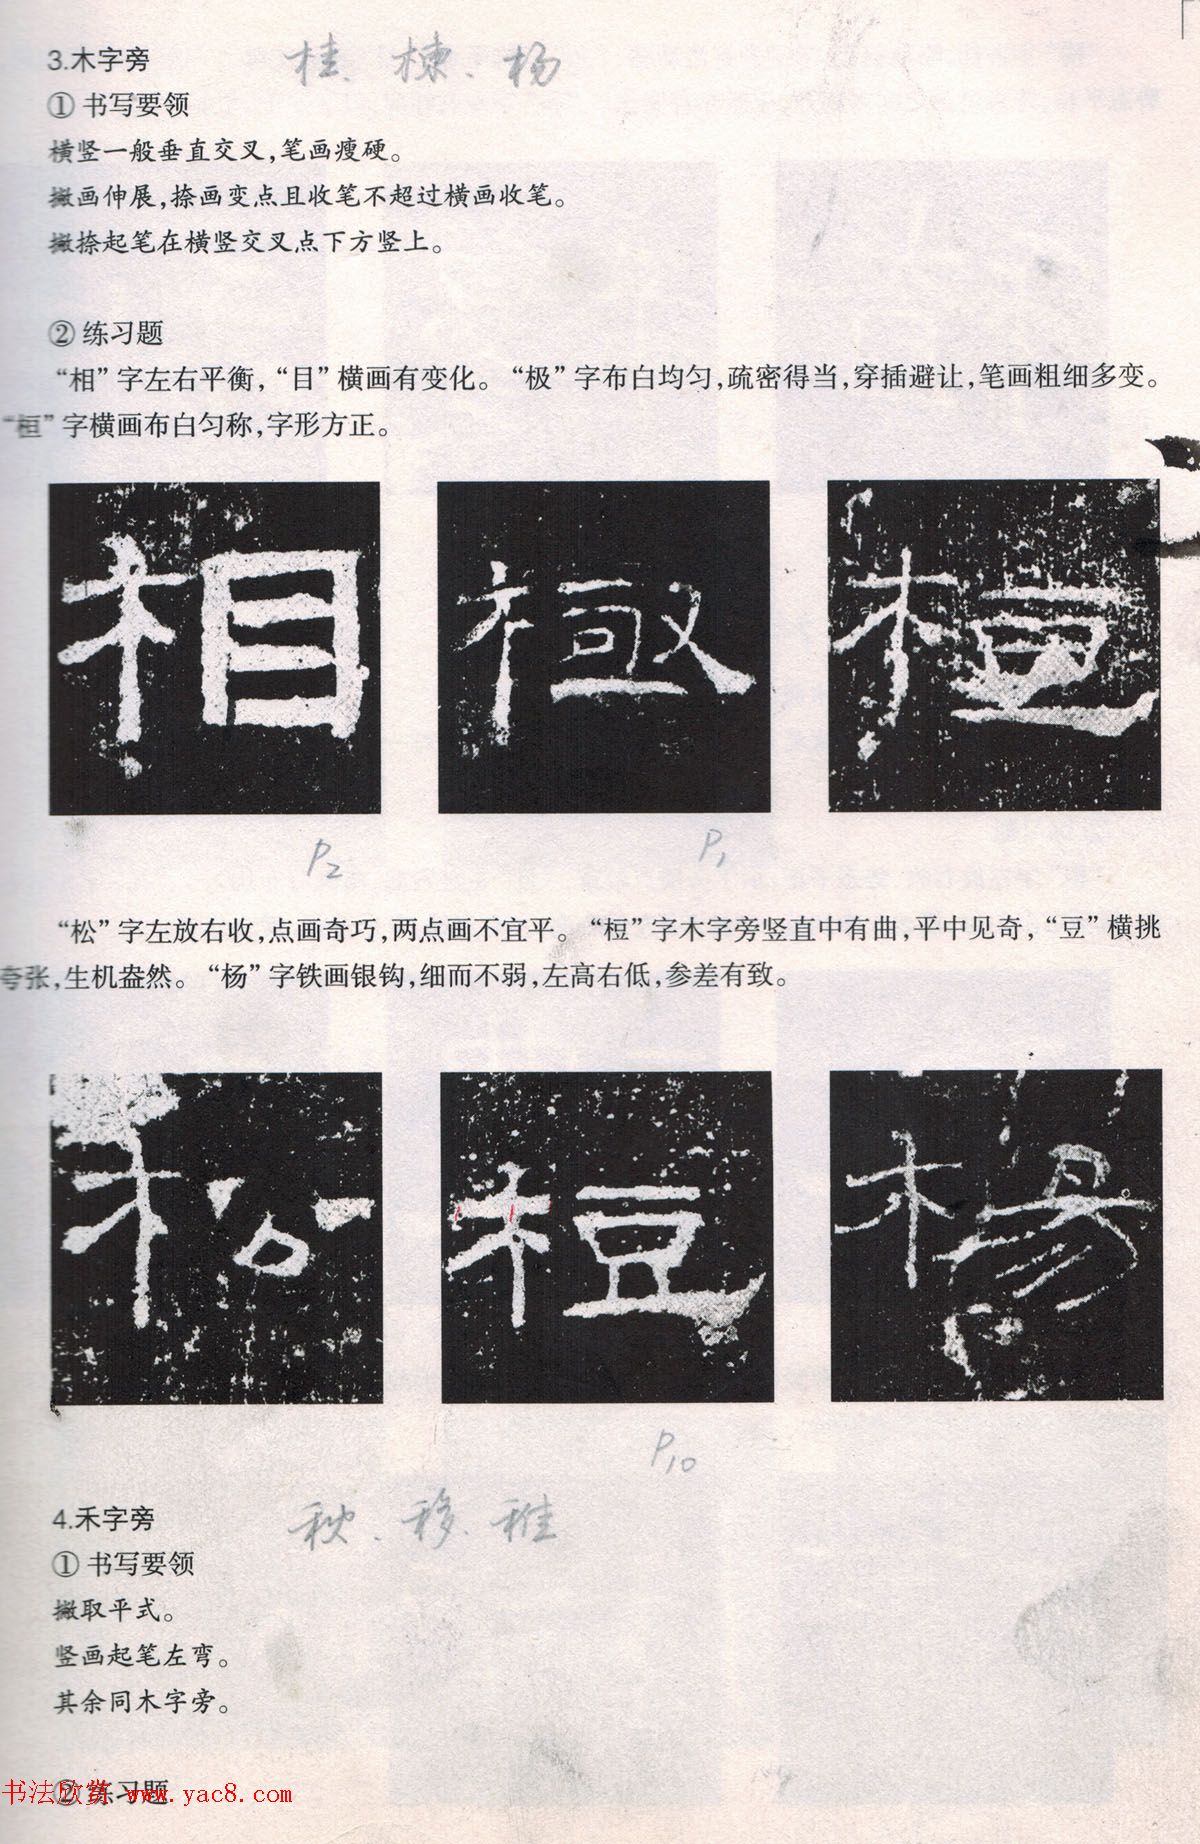 3.木字旁 桂、梀、杨
① 书写要领
横竖一般垂直交叉,笔画瘦硬。
撇画伸展,捺画变点且收笔不超过横画收笔。
撇捺起笔在横竖交叉点下方竖上。
② 练习题
“相”字左右平衡,“目”横画有变化。“极”字布白均匀,疏密得当,穿插避让,笔画粗细多变。
“桓”字横画布白匀称,字形方正。
相 極 桓
P2 P1
“松”字左放右收,点画奇巧,两点画不宜平。“桓”字木字旁竖直中有曲,平中见奇,“豆”横挑
夸张,生机盎然。“杨”字铁画银钩,细而不弱,左高右低,参差有致。
松 梪 楊
P10
4.禾字旁 秋、移、稚
① 书写要领
撇取平式。
竖画起笔左弯。
其余同木字旁。
② 练习题
书法欣赏 www.yac8.com